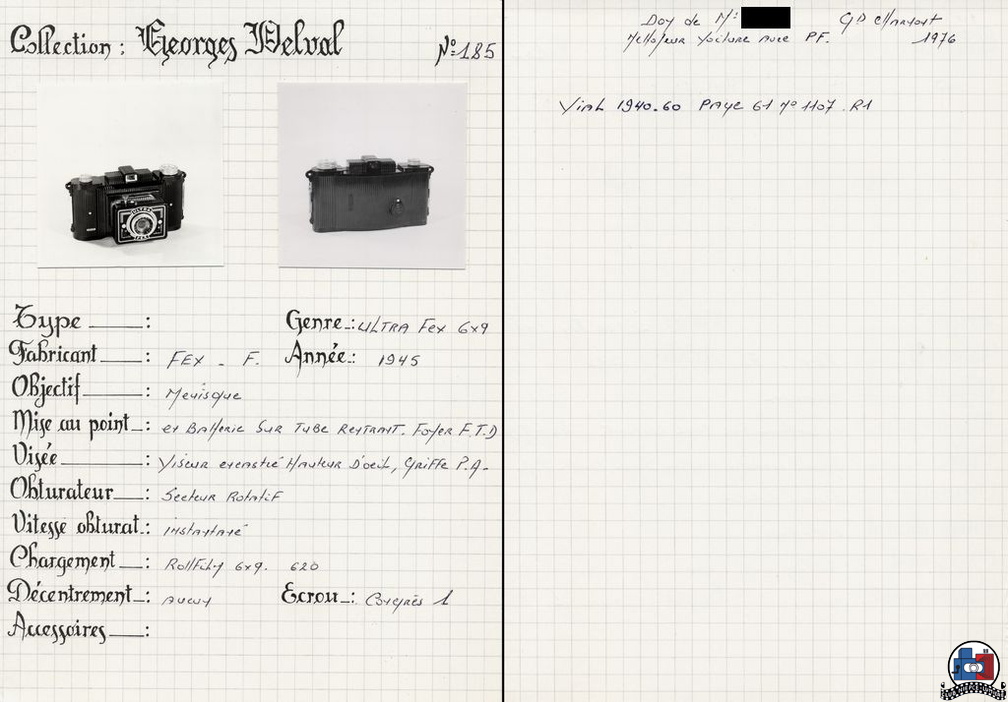 Collection : Georges Delval
N°185
Type : Genre : ULTRA FEX 6x9
Fabricant : FEX - F. Année : 1945
Objectif : Menisque
Mise au point : et Batterie SUR TUBE RENTRANT. Foyer F.T.D
Visée : Viseur encastré Hauteur D'oeil, Griffe P.A.
Obturateur : Secteur Rotatif
Vitesse obturat. : instantané
Chargement : RollFilm 6x9. 620
Décentrement : aucun Ecrou : Congrès 1
Accessoires :
Don de Mr
1976
Voiture avec PF.
Vial 1940.60 PAGE 61 n° 1107 . R1